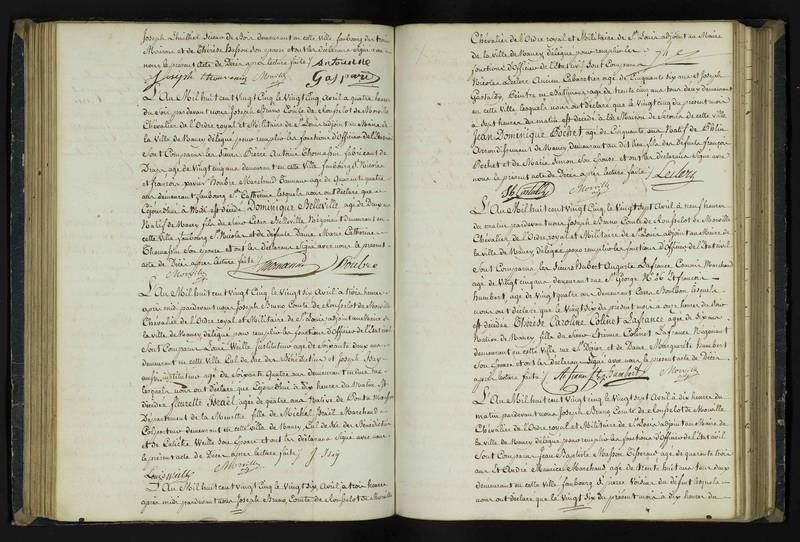 nous le présent acte de Décès après lecture faite / Antoinne
Joseph Morville Gaspard
L'An Mil huit cent Vingt Cinq le Vingt Cinq Avril a quatre heures
du Soir pardevant nous Joseph Bruno Comte de Rousselot de Morville
Chevalier de l'Ordre royal et Militaire de St Louis adjoint au Maire de
la Ville de Nancy délégué pour remplir les fonctions d'Officier de l'Etat civil
Sont Comparus les Sieurs Pierre Antoine Thomassin fabricant de
Draps agé de Vingt cinq ans demeurant en cette Ville faubourg St Nicolas
et françois Marchand agé de Quarante quatre
ans demeurant faubourg Ste Catherine lesquels nous ont déclaré que
aujourd'hui a Midi est décédé Dominique Belleville agé de Deux
Natif de Nancy fils de Belleville Négociant demeurant en
cette Ville faubourg St Nicolas et de défunte Dame Marie Catherine
Thomassin son épouse et ont les déclarans Signé avec nous le présent
acte de Décès après lecture faite /
Morville
L'An Mil huit cent Vingt Cinq le Vingt Six Avril a trois heures
après midi pardevant nous Joseph Bruno Comte de Rousselot de Morville
Chevalier de l'Ordre royal et Militaire de St Louis adjoint au Maire de
la Ville de Nancy délégué pour remplir les fonctions d'Officier de l'Etat civil
Sont Comparus Louis Weille Instituteur agé de Soixante deux ans
demeurant en cette Ville Cul de Sac des Bénédictins et Joseph
instituteur agé de Soixante Quatre ans demeurant même rue
lesquels nous ont déclaré que aujourd'hui a dix heures du Matin est
décédée fleurette Israël agée de quatre ans Native de Pont a Mousson
Département de la Meurthe fille de Michel Israël Marchand
Colporteur demeurant en cette ville de Nancy Cul de Sac des Bénédictins
et de Weille Son épouse et ont les déclarans Signé avec nous
le présent acte de Décès après lecture faite / J.
Louis Weille Morville
L'An Mil huit cent Vingt Cinq le Vingt Six Avril a trois heures
après midi pardevant nous Joseph Bruno Comte de Rousselot de Morville
Chevalier de l'Ordre royal et Militaire de St Louis adjoint au Maire
de la Ville de Nancy délégué pour remplir les
fonctions d'Officier de l'Etat civil Sont Comparus
Nicolas Leclerc Ancien Cabaretier agé de Cinquante Six ans et Joseph
Gastaldy Peintre en Bâtimens agé de trente cinq ans tous deux demeurant
en cette Ville lesquels nous ont déclaré que le Vingt cinq du présent mois
a Sept heures du matin est décédé a la Maison de Secours de cette ville
Jean Dominique Bochet agé de Cinquante ans Natif de
Arrondissement de Nancy demeurant au dit lieu fils des défunts françois
Bochet et de Marie Simon Son épouse et ont les déclarans Signé avec
nous le présent acte de Décès après lecture faite / Leclerc
Gastaldy Morville
L'An Mil huit cent Vingt Cinq le Vingt Sept Avril a neuf heures
du matin pardevant nous Joseph Bruno Comte de Rousselot de Morville
Chevalier de l'Ordre royal et Militaire de St Louis adjoint au Maire de
la Ville de Nancy délégué pour remplir les fonctions d'Officier de l'Etat civil
Sont Comparus les Sieurs Hubert Auguste Lafrance Commis Marchand
agé de Vingt cinq ans demeurant rue St George et françois
humbert agé de Vingt quatre ans demeurant Cours Bourbon lesquels
nous ont déclaré que le Vingt Six du présent mois a onze heures du Soir
est décédée Thérèse Caroline Colinet Lafrance agée de dix ans
Native de Nancy fille du Sieur Etienne Colinet Lafrance Négociant
demeurant en cette Ville rue St Dizier et de Dame Marguerite humbert
Son épouse et ont les déclarans Signé avec nous le présent acte de Décès
après lecture faite / humbert Morville
L'An Mil huit cent Vingt Cinq le Vingt Sept Avril a dix heures du
matin pardevant nous Joseph Bruno Comte de Rousselot de Morville
Chevalier de l'Ordre royal et Militaire de St Louis adjoint au Maire de
la Ville de Nancy délégué pour remplir les fonctions d'Officier de l'Etat civil
Sont Comparus Jean Baptiste Masson Tisserand agé de quarante trois
ans et André Marchand agé de trente huit ans tous deux
demeurant en cette Ville faubourg St pierre Voisins du défunt lesquels
nous ont déclaré que le Vingt Six du présent mois a dix heures du